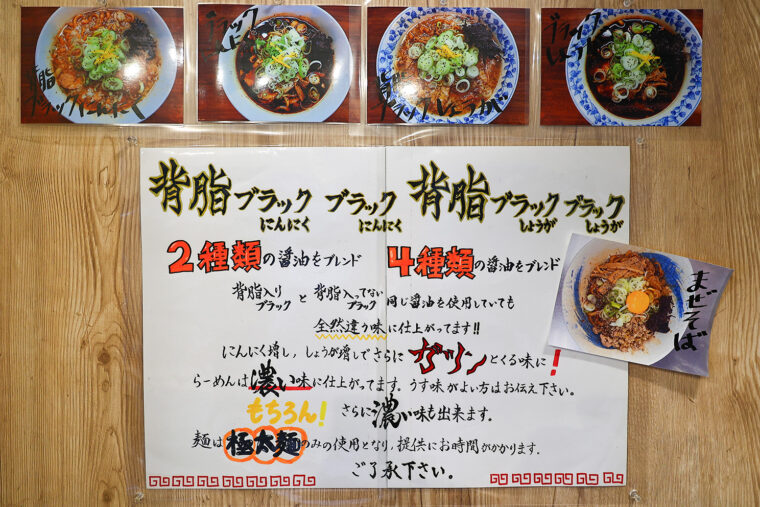 背脂
ブラックにんにく
ブラック
にんにく
背脂
ブラックしょうが
ブラック
しょうが
背脂ブラックにんにく ブラックにんにく 背脂ブラックしょうが ブラックしょうが
2種類の醤油をブレンド 4種類の醤油をブレンド
背脂入りブラックと背脂入ってないブラック同じ醤油を使用していても
全然違う味に仕上がってます!!
にんにく増し,しょうが増しでさらにガツンとくる味に!
らーめんは濃い味に仕上がってます.うす味がよい方はお伝え下さい。
もちろん!さらに濃い味も出来ます.
麺は極太麺のみの使用となり,提供にお時間がかかります.
ご了承下さい。
まぜそば